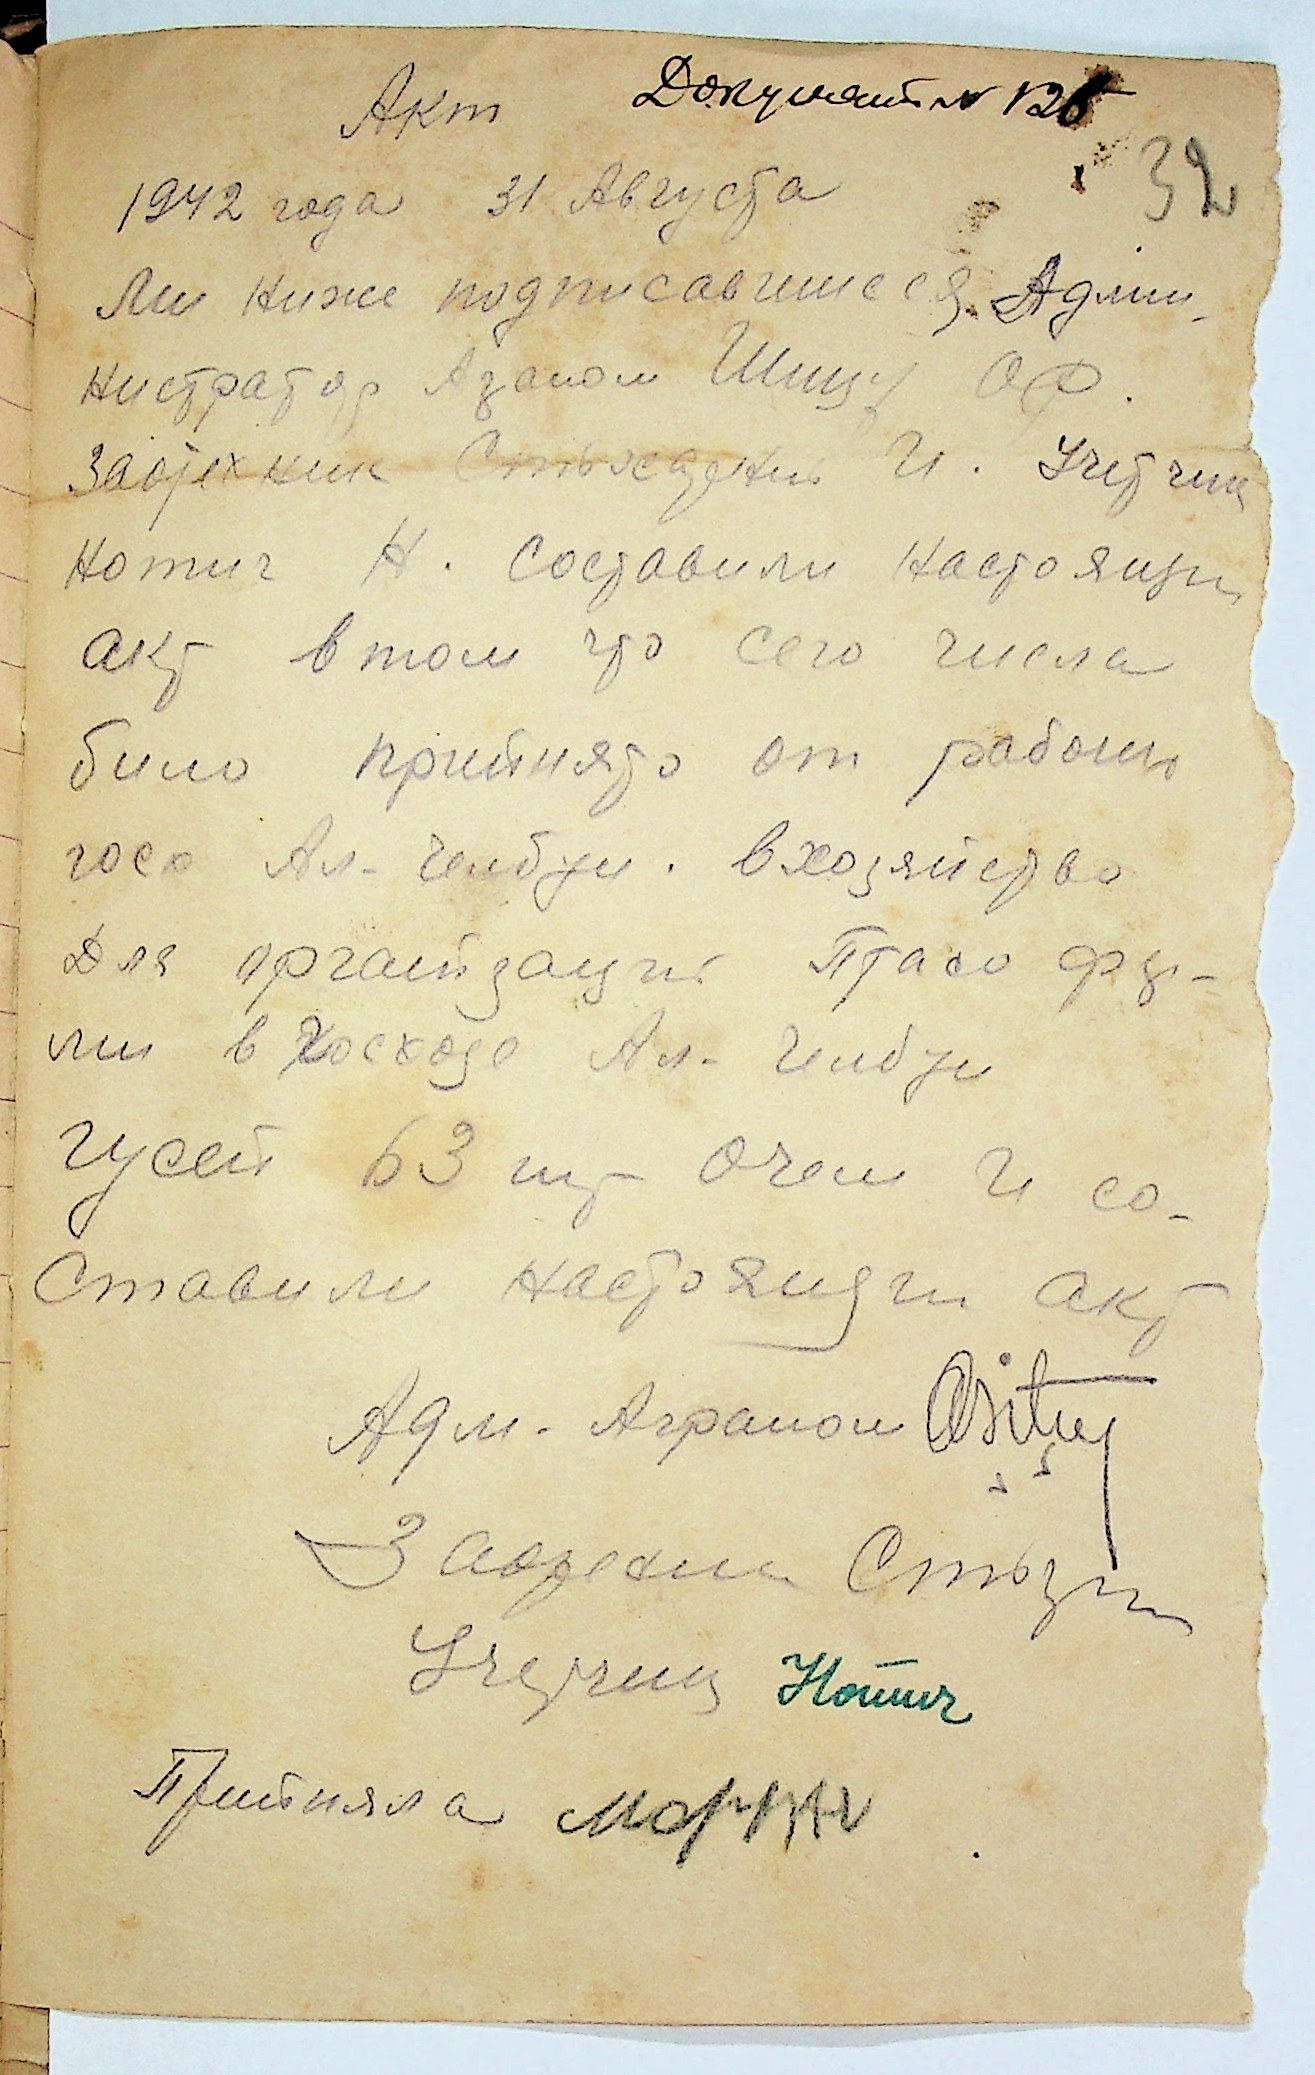 Акт Документ № 126
32
1942 года 31 Августа
Ми ниже подписавшиеся Адми-
нистратор Шицу ОФ.
Заотехник И. Учетчик
Нотич Н. составили настоящи
акт в том что сего числа
било прийнято от рабочих
госх Ал- Челбун. в хозяйство
Для организации Птахо фер-
ми в госходе Ал- Челбун
гусей 63 шт очем И со-
ставили настоящи акт
Адм- Аграном
Заотехник
Учетчик Нотич
Прийняла